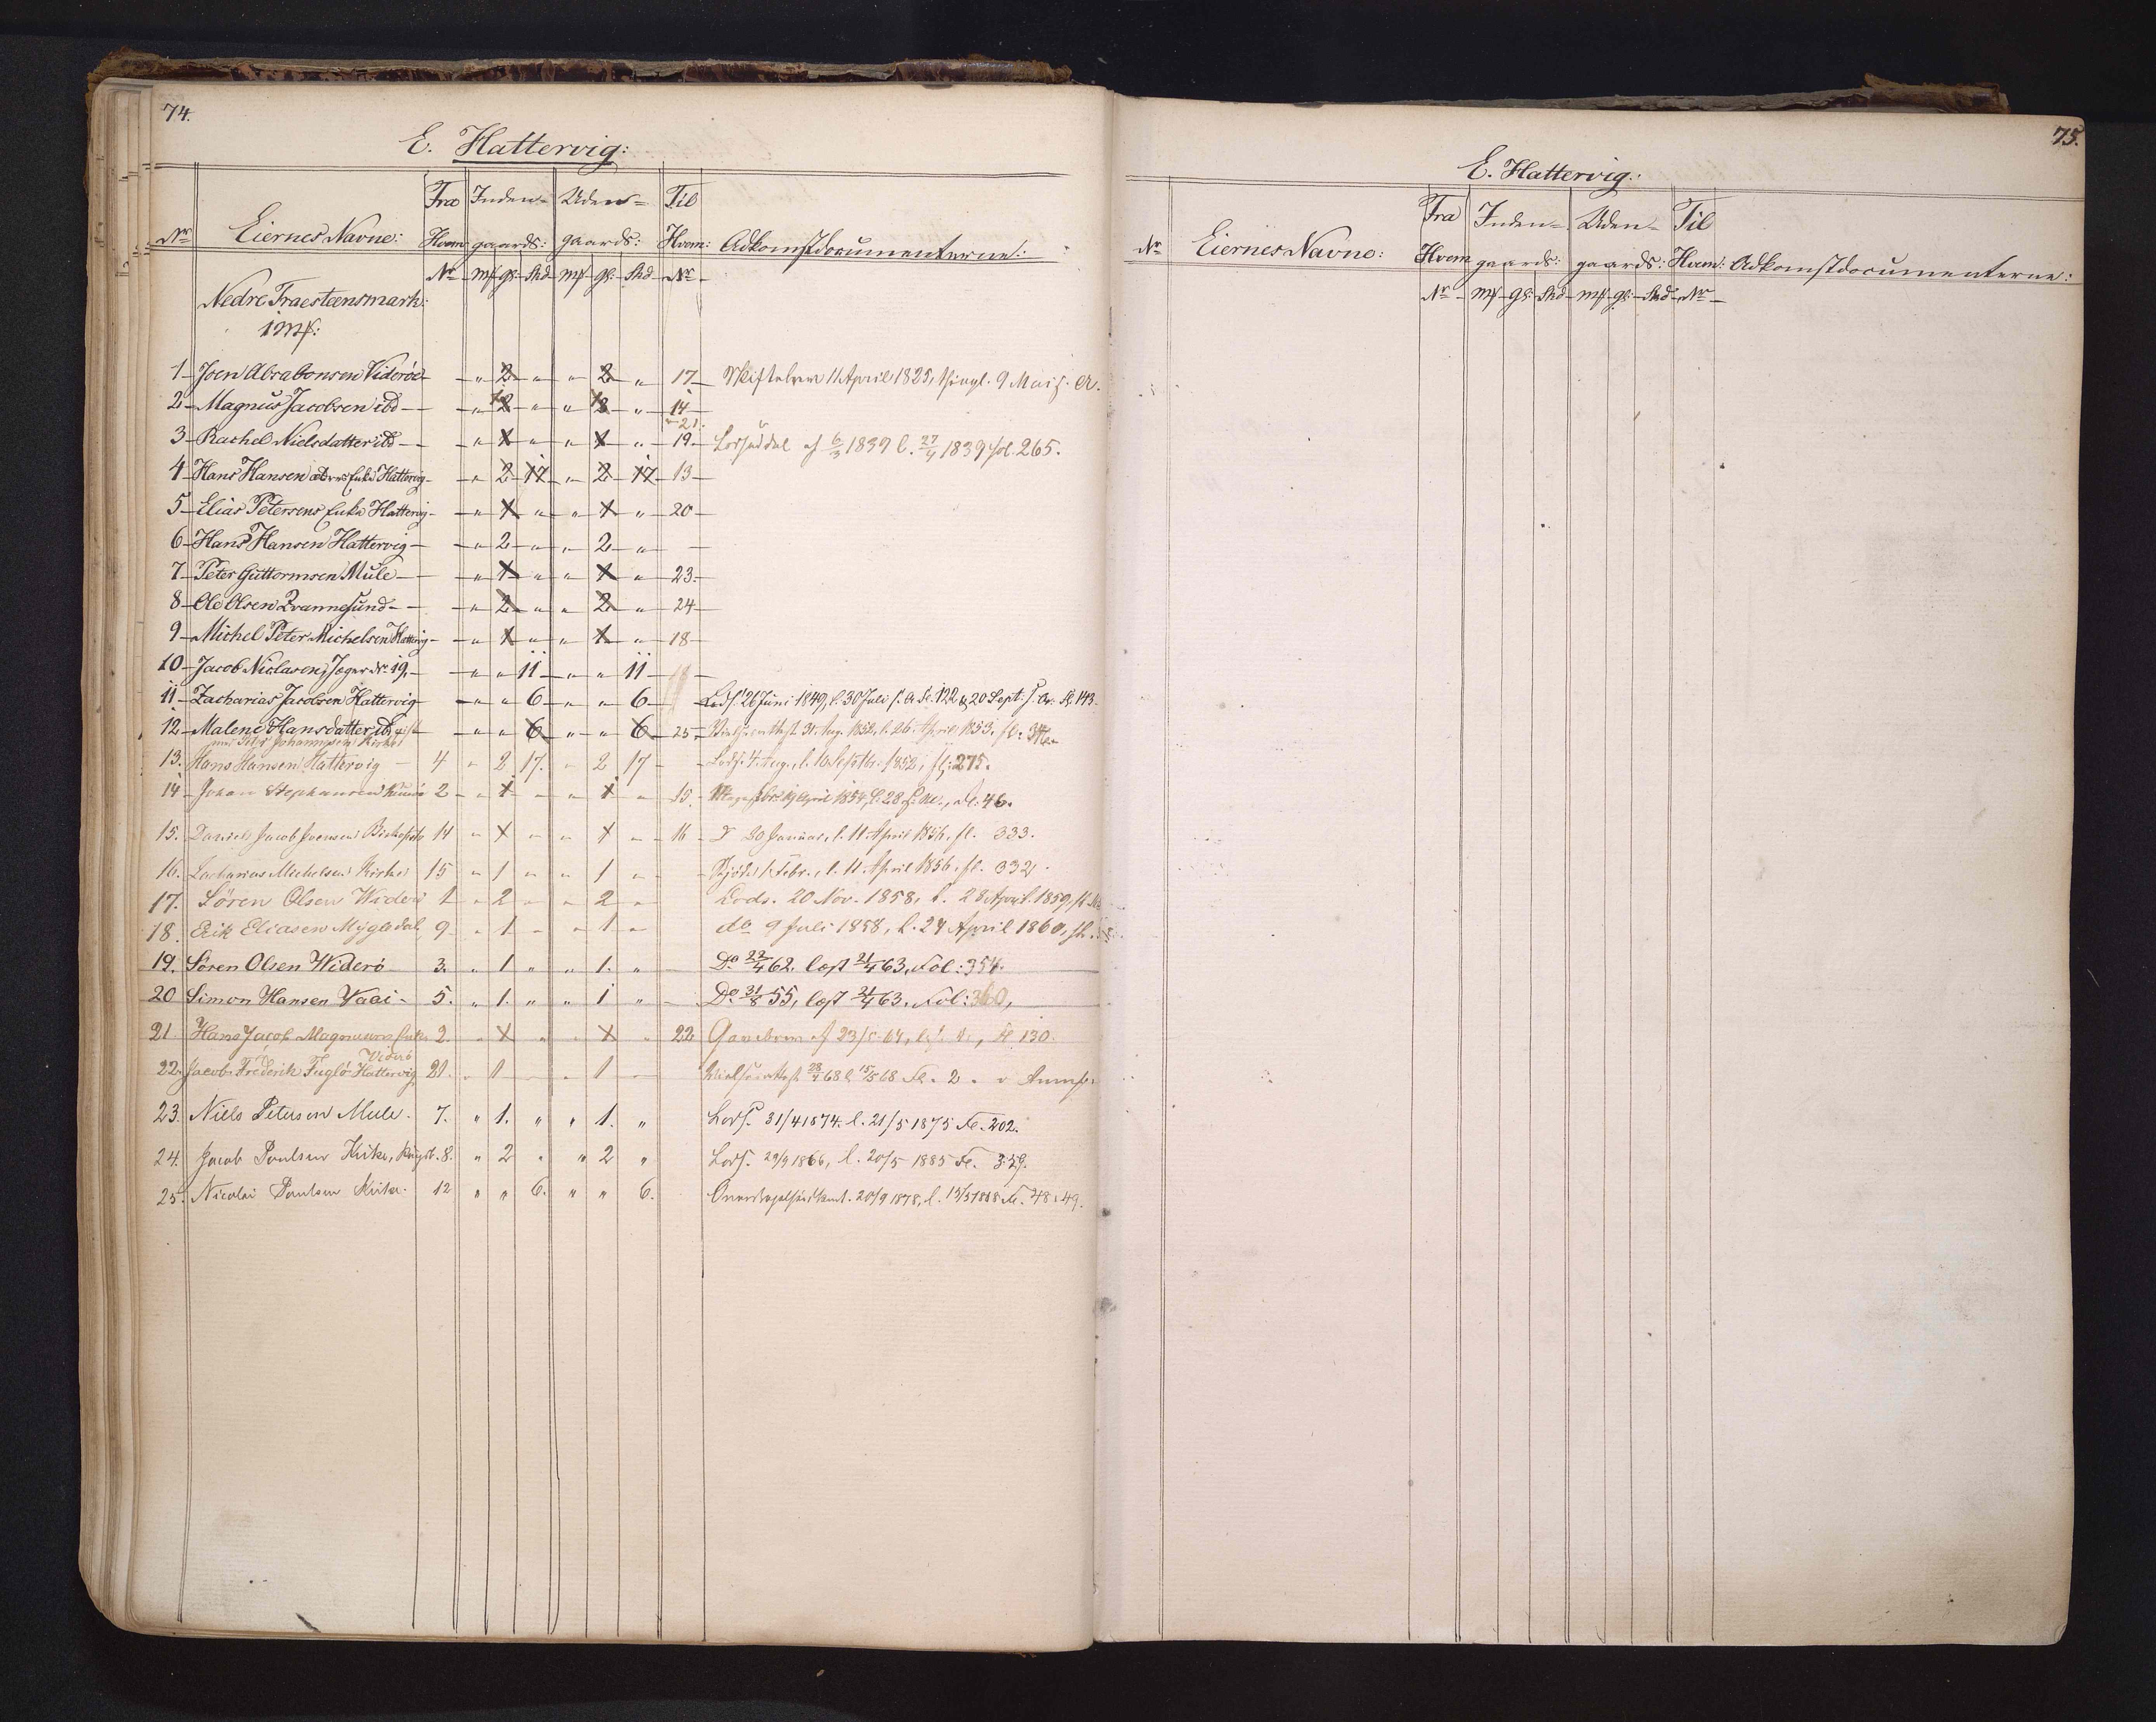 74.
E. Hattervig:
Nr Eiernes Navne: Fra Hvem Inden- gaards: Uden- gaards: Til Hvem: Adkomstdocumenterne:
Nr mk gl. Skd mk gl. Skd Nr
Nedre Traestensmark:
1 mk:
1 Joen Absalonsen Viderøe " 2 " " 2 " 17 Skiftebrev 11 April 1825, thingl. 9 Mai s. A.
2 Magnus Jacobsen ibd " 2 " " 2 " 14
21.
3 Rachel Nielsdatter ibd " 1 " " 1 " 19 Lodseddel af 6/3 1839 l. 27/4 1839 fol. 265.
4 Hans Hansen Enke Hattervig " 2 17 " 2 17 13
5 Elias Petersens Enke Hattervig " 1 " " 1 " 20
6 Hans Hansen Hattervig " 2 " " 2 "
7 Peter Guttormsen Mule " 1 " " 1 " 23.
8 Ole Olsen Qvannesund " 2 " " 2 " 24
9 Michel Peter Michelsen Hattervig " 1 " " 1 " 18
10 Jacob Niclasen, Jæger Nr 19. " " 11 " " 11
11 Zacharias Jacobsen Hattervig " " 6 " " 6 Lods. 26 Juni 1849, l. 30 Juli s. A. Fl. 122 & 20 Sept. s. A. Fl 143.
12 Malene Hansdatter ibd " " 6 " " 6 25 31. Aug. 1852, l. 26. April 1853. fl.
Johannesen Kirke
13. Hans Hansen Hattervig 4 " 2 17. " 2 17 Lods. 4. Aug., l. 16 Septbr. 1852, fl: 275.
14 Johan Stephansen Kunø 2 " 1 " " 1 " 15. 19 April 1854, l. 28 s. M., Fl. 46.
15. Daniel Jacob Joensen 14 " 1 " " 1 " 16 20 Januar, l. 11 April 1856, fl. 333.
16. Zacharias Michelsen Kirke 15 " 1 " " 1 " Skjøde 1 Febr., l. 11 April 1856, fl. 332.
17. Sören Olsen Widerö 1 " 2 " " 2 " Lods. 20 Nov. 1858, l. 28 April 1859,
18. Erik Eliasen Mygledal 9 " 1 " " 1 " do 9 Juli 1858, l. 24 April 1860, fl.
19. Sören Olsen Widerö 3. " 1 " " 1. " Do 22/4 62. læst 21/4 63. Fol: 354.
20 Simon Hansen Vaai 5. " 1. " " 1 " Do 31/8 55, læst 21/4 63. Fol: 360,
21. Hans Jacob Magnussens Enke 2. " 1 " " 1 " 22 Gavebrev af 23/5 64, Fl 130.
Viderö
22. Jacob Frederik Fuglö Hattervig 21. " 1 " 1 28/4 68 l 15/5 68 Fl. 2.
23. Niels Petersen Mule. 7. " 1. " " 1. " Lods. 31/4 1874. l. 21/5 1875 Fl. 202.
24. Jacob Poulsen Kirke, 8. " 2 " " 2 " Lods. 29/9 1866, l. 20/5 1885 Fl. 329.
25. Nicolai Poulsen Kirke. 12 " " 6. " " 6. 20/9 1878, l. 15/5 1888 Fl. 48 & 49.
75.
E. Hattervig:
Nr Eiernes Navne: Fra Hvem Inden- gaards: Uden- gaards: Til Hvem: Adkomstdocumenterne:
Nr mk gl. Skd mk gl. Skd Nr